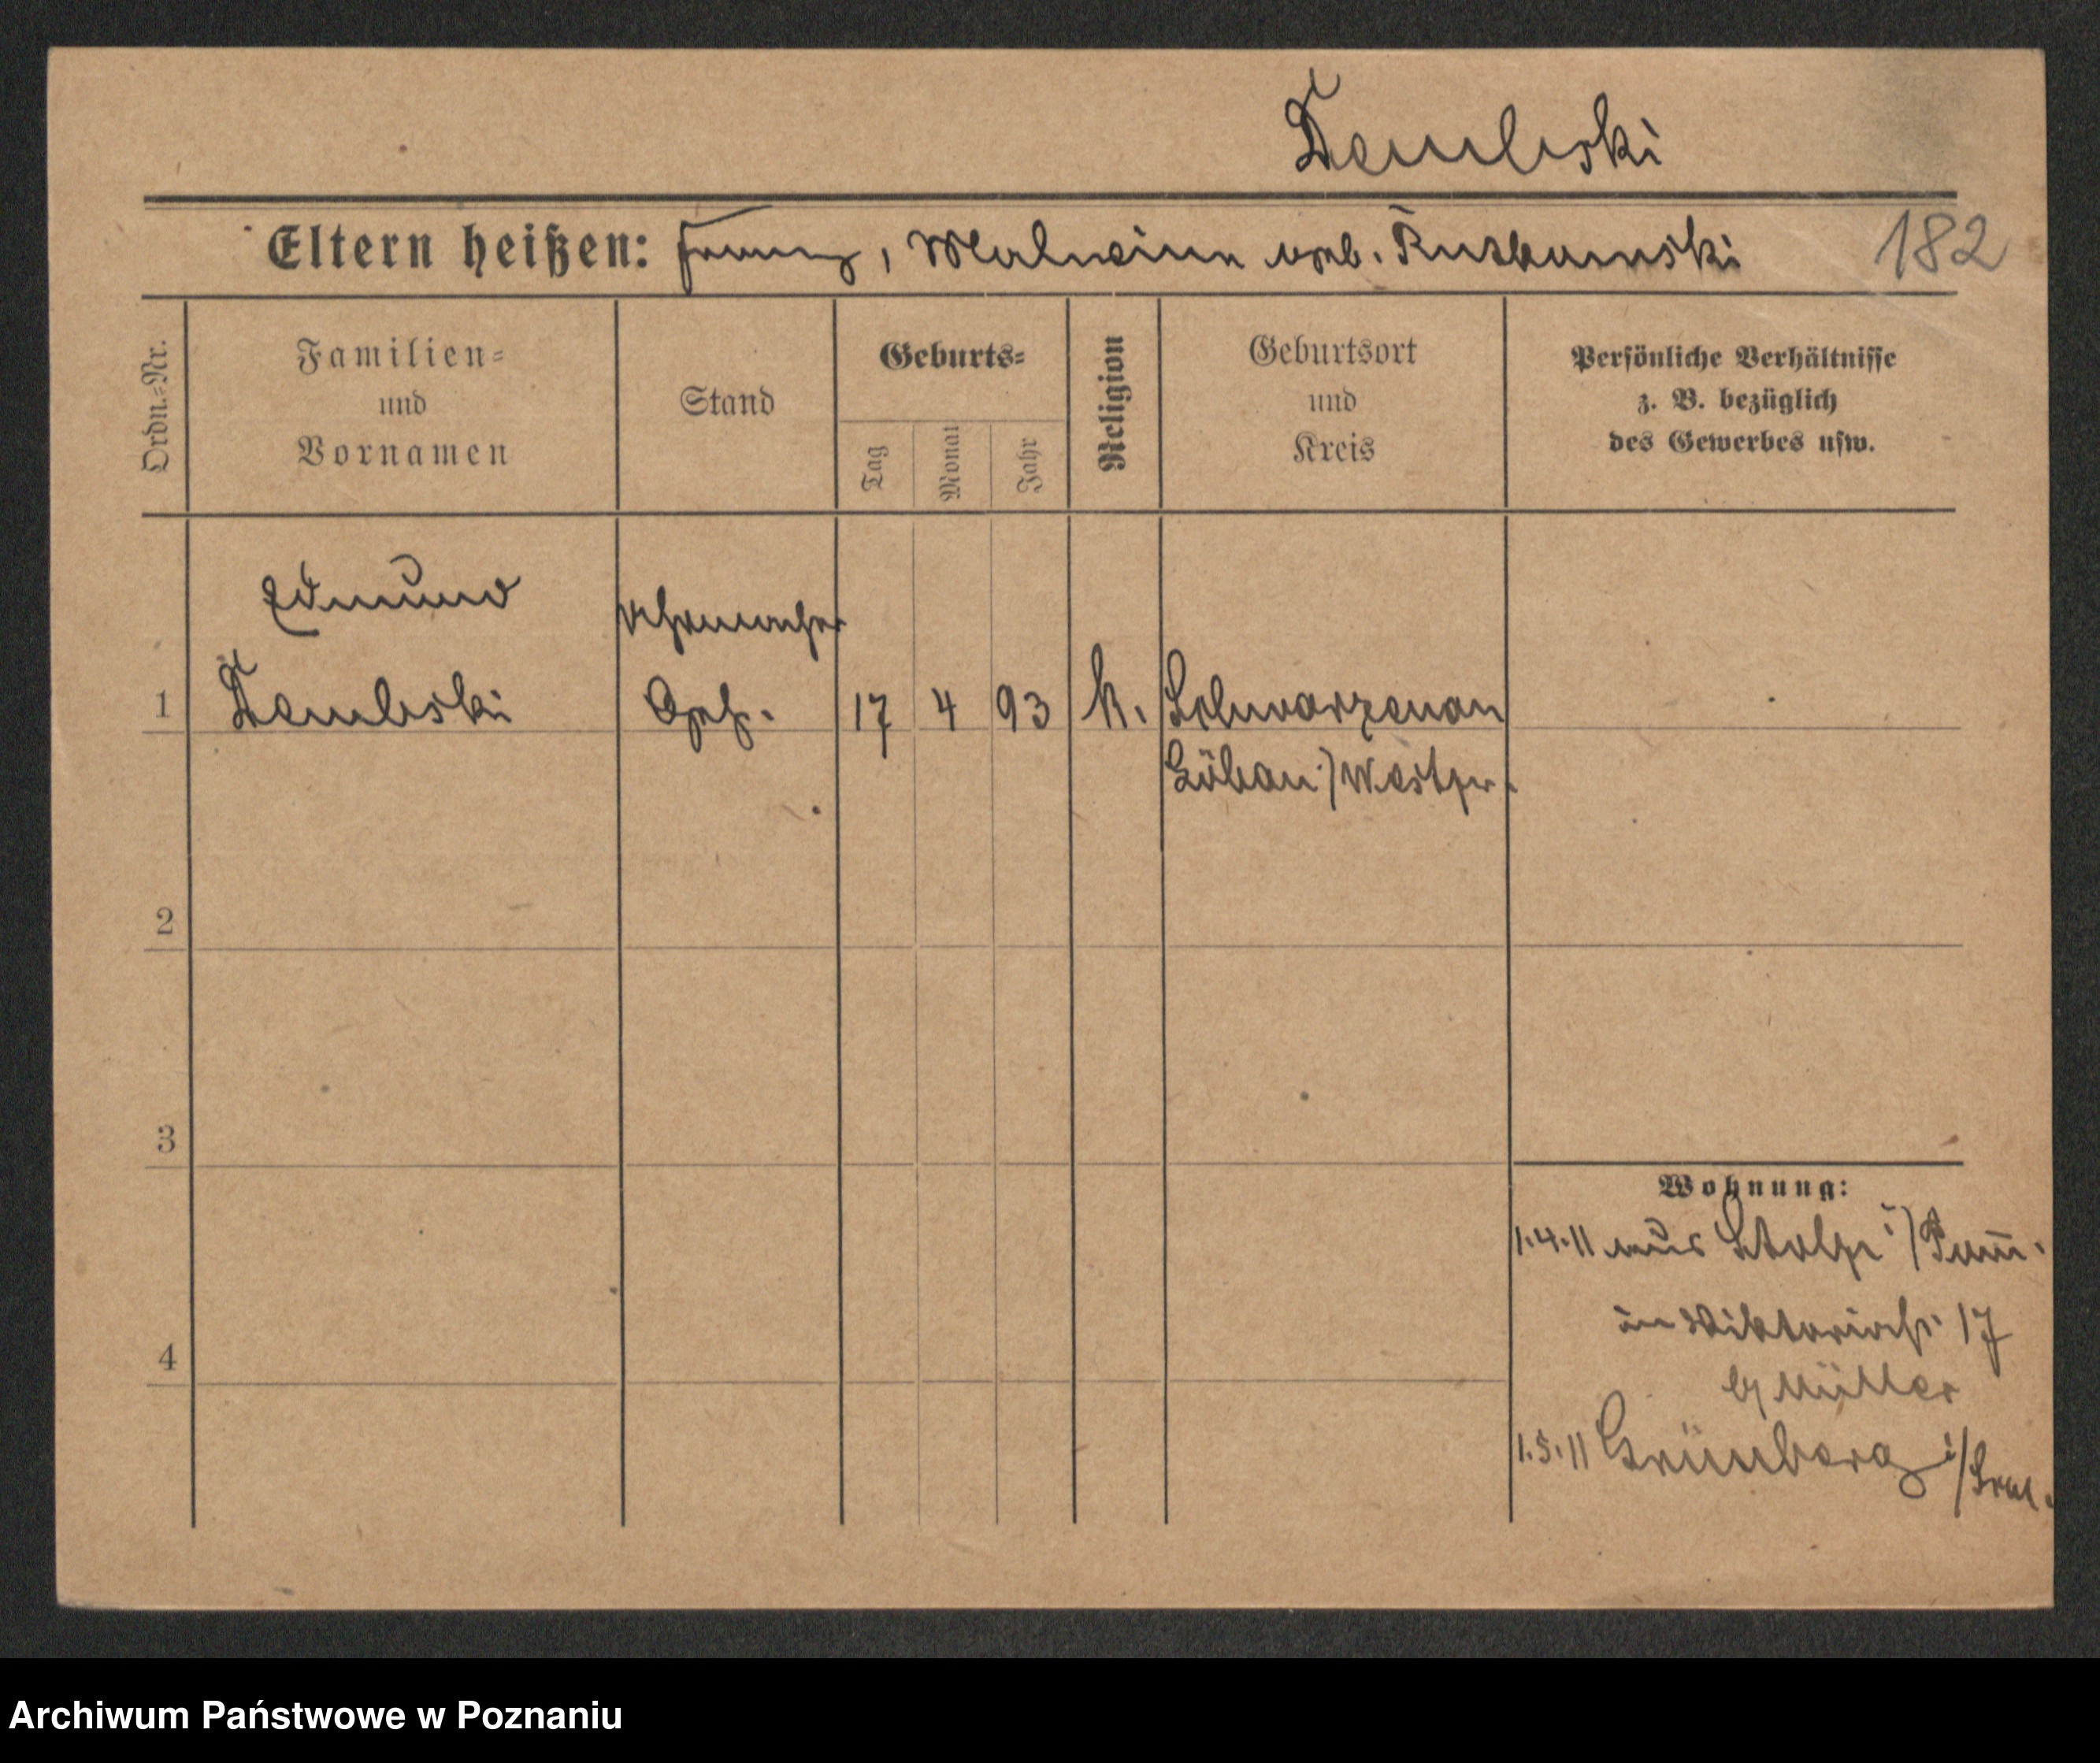 Dembski
Eltern heißen: Franz, Malwina geb. Rutkowski
182
Ordn.-Nr.
Familien-
und
Vornamen
Stand
Geburts-
Tag
Monat
Jahr
Religion
Geburtsort
und
Kreis
Persönliche Verhältnisse
z. B. bezüglich
des Gewerbes usw.
Edmund
Uhrmacher
1 Dembski Geh. 17 4 93 k. Schwarzenau
Löbau i/Westpr.
2
3
4
Wohnung:
1.4.11 aus Stolp i/Pom̅.
in Viktoriastr. 17
b/ Müller
1.5.11 Grünberg i/